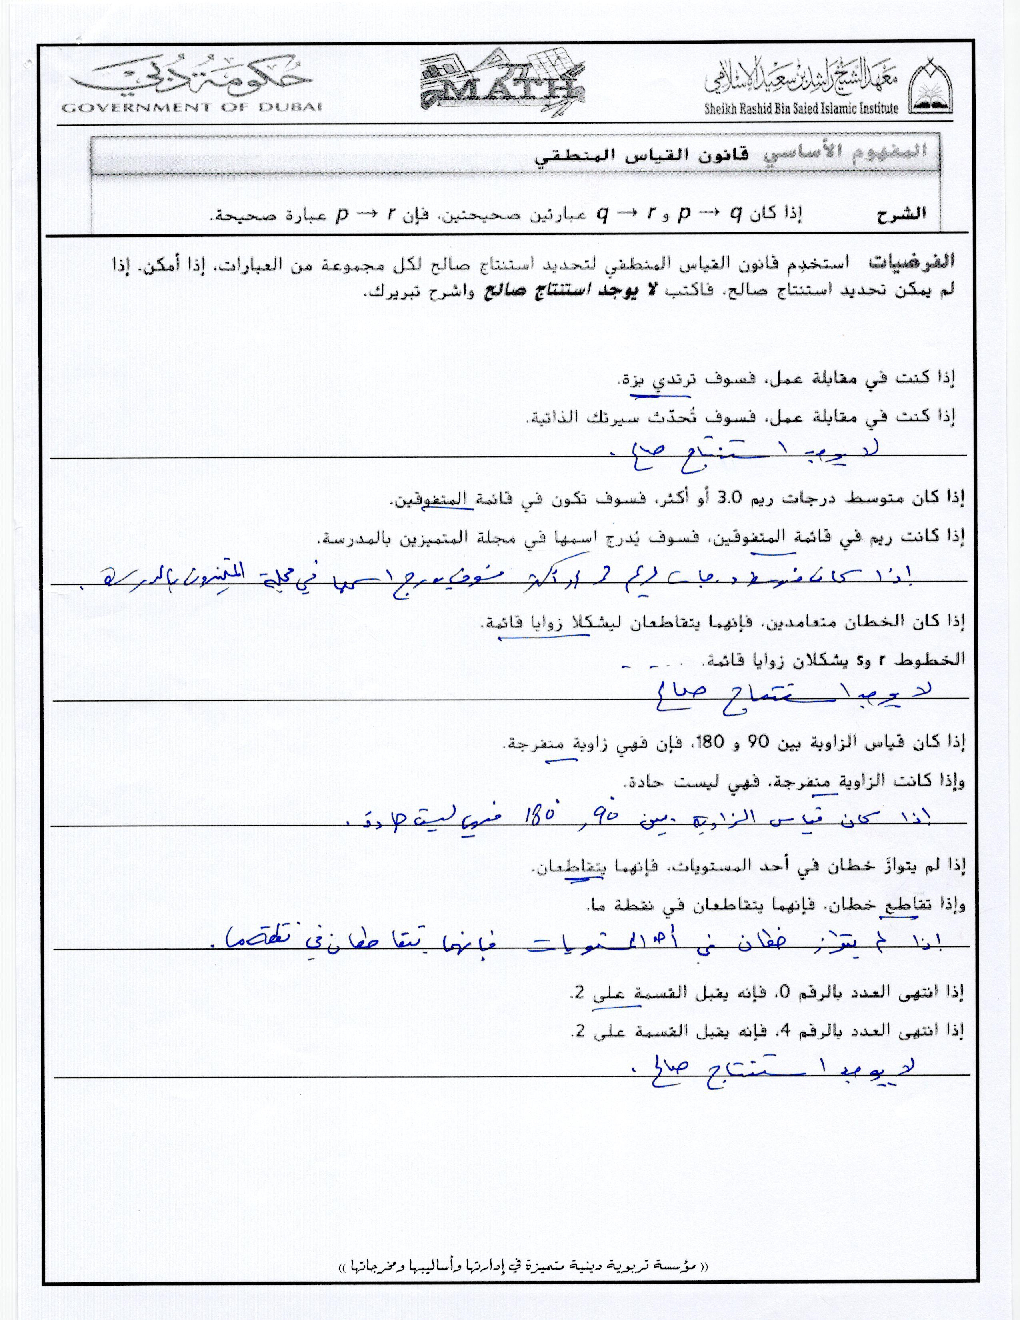 حكومة دبي
GOVERNMENT OF DUBAI
MATH
معهد الشيخ راشد بن سعيد الإسلامي
Sheikh Rashid Bin Saied Islamic Institute
المفهوم الأساسي قانون القياس المنطقي
الشرح إذا كان p → q و q → r عبارتين صحيحتين، فإن p → r عبارة صحيحة.
الفرضيات استخدِم قانون القياس المنطقي لتحديد استنتاج صالح لكل مجموعة من العبارات، إذا أمكن. إذا
لم يمكن تحديد استنتاج صالح، فاكتب لا يوجد استنتاج صالح واشرح تبريرك.
إذا كنت في مقابلة عمل، فسوف ترتدي بزة.
إذا كنت في مقابلة عمل، فسوف تُحدّث سيرتك الذاتية.
لا يوجد استنتاج صالح.
إذا كان متوسط درجات ريم 3.0 أو أكثر، فسوف تكون في قائمة المتفوقين.
إذا كانت ريم في قائمة المتفوقين، فسوف يُدرج اسمها في مجلة المتميزين بالمدرسة.
إذا كان متوسط درجات ريم 3 أو أكثر فسوف يدرج اسمها في مجلة المتميزون بالمدرسة.
إذا كان الخطان متعامدين، فإنهما يتقاطعان ليشكلا زوايا قائمة.
الخطوط r وs يشكلان زوايا قائمة.
لا يوجد استنتاج صالح
إذا كان قياس الزاوية بين 90 و 180، فإن فهي زاوية منفرجة.
وإذا كانت الزاوية منفرجة، فهي ليست حادة.
إذا كان قياس الزاوية بين 90°, 180° فهي ليست حادة.
إذا لم يتوازَ خطان في أحد المستويات، فإنهما يتقاطعان.
وإذا تقاطع خطان، فإنهما يتقاطعان في نقطة ما.
إذا لم يتواز خطان في أحد المستويات فإنهما يتقاطعان في نقطة ما.
إذا انتهى العدد بالرقم 0، فإنه يقبل القسمة على 2.
إذا انتهى العدد بالرقم 4، فإنه يقبل القسمة على 2.
لا يوجد استنتاج صالح.
(( مؤسسة تربوية دينية متميزة في إدارتها وأساليبها ومخرجاتها ))